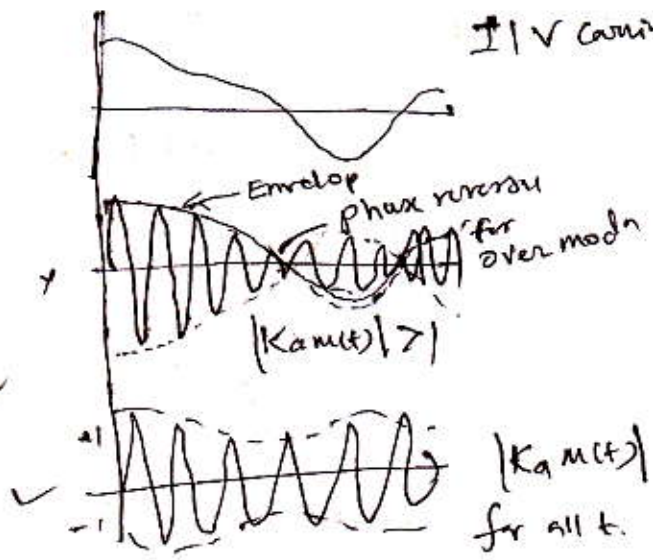 ±1 V Carri
Envelop
phase reversal
for
over modn
|Ka m(t)| > 1
+1
|Ka m(t)|
-1
for all t.